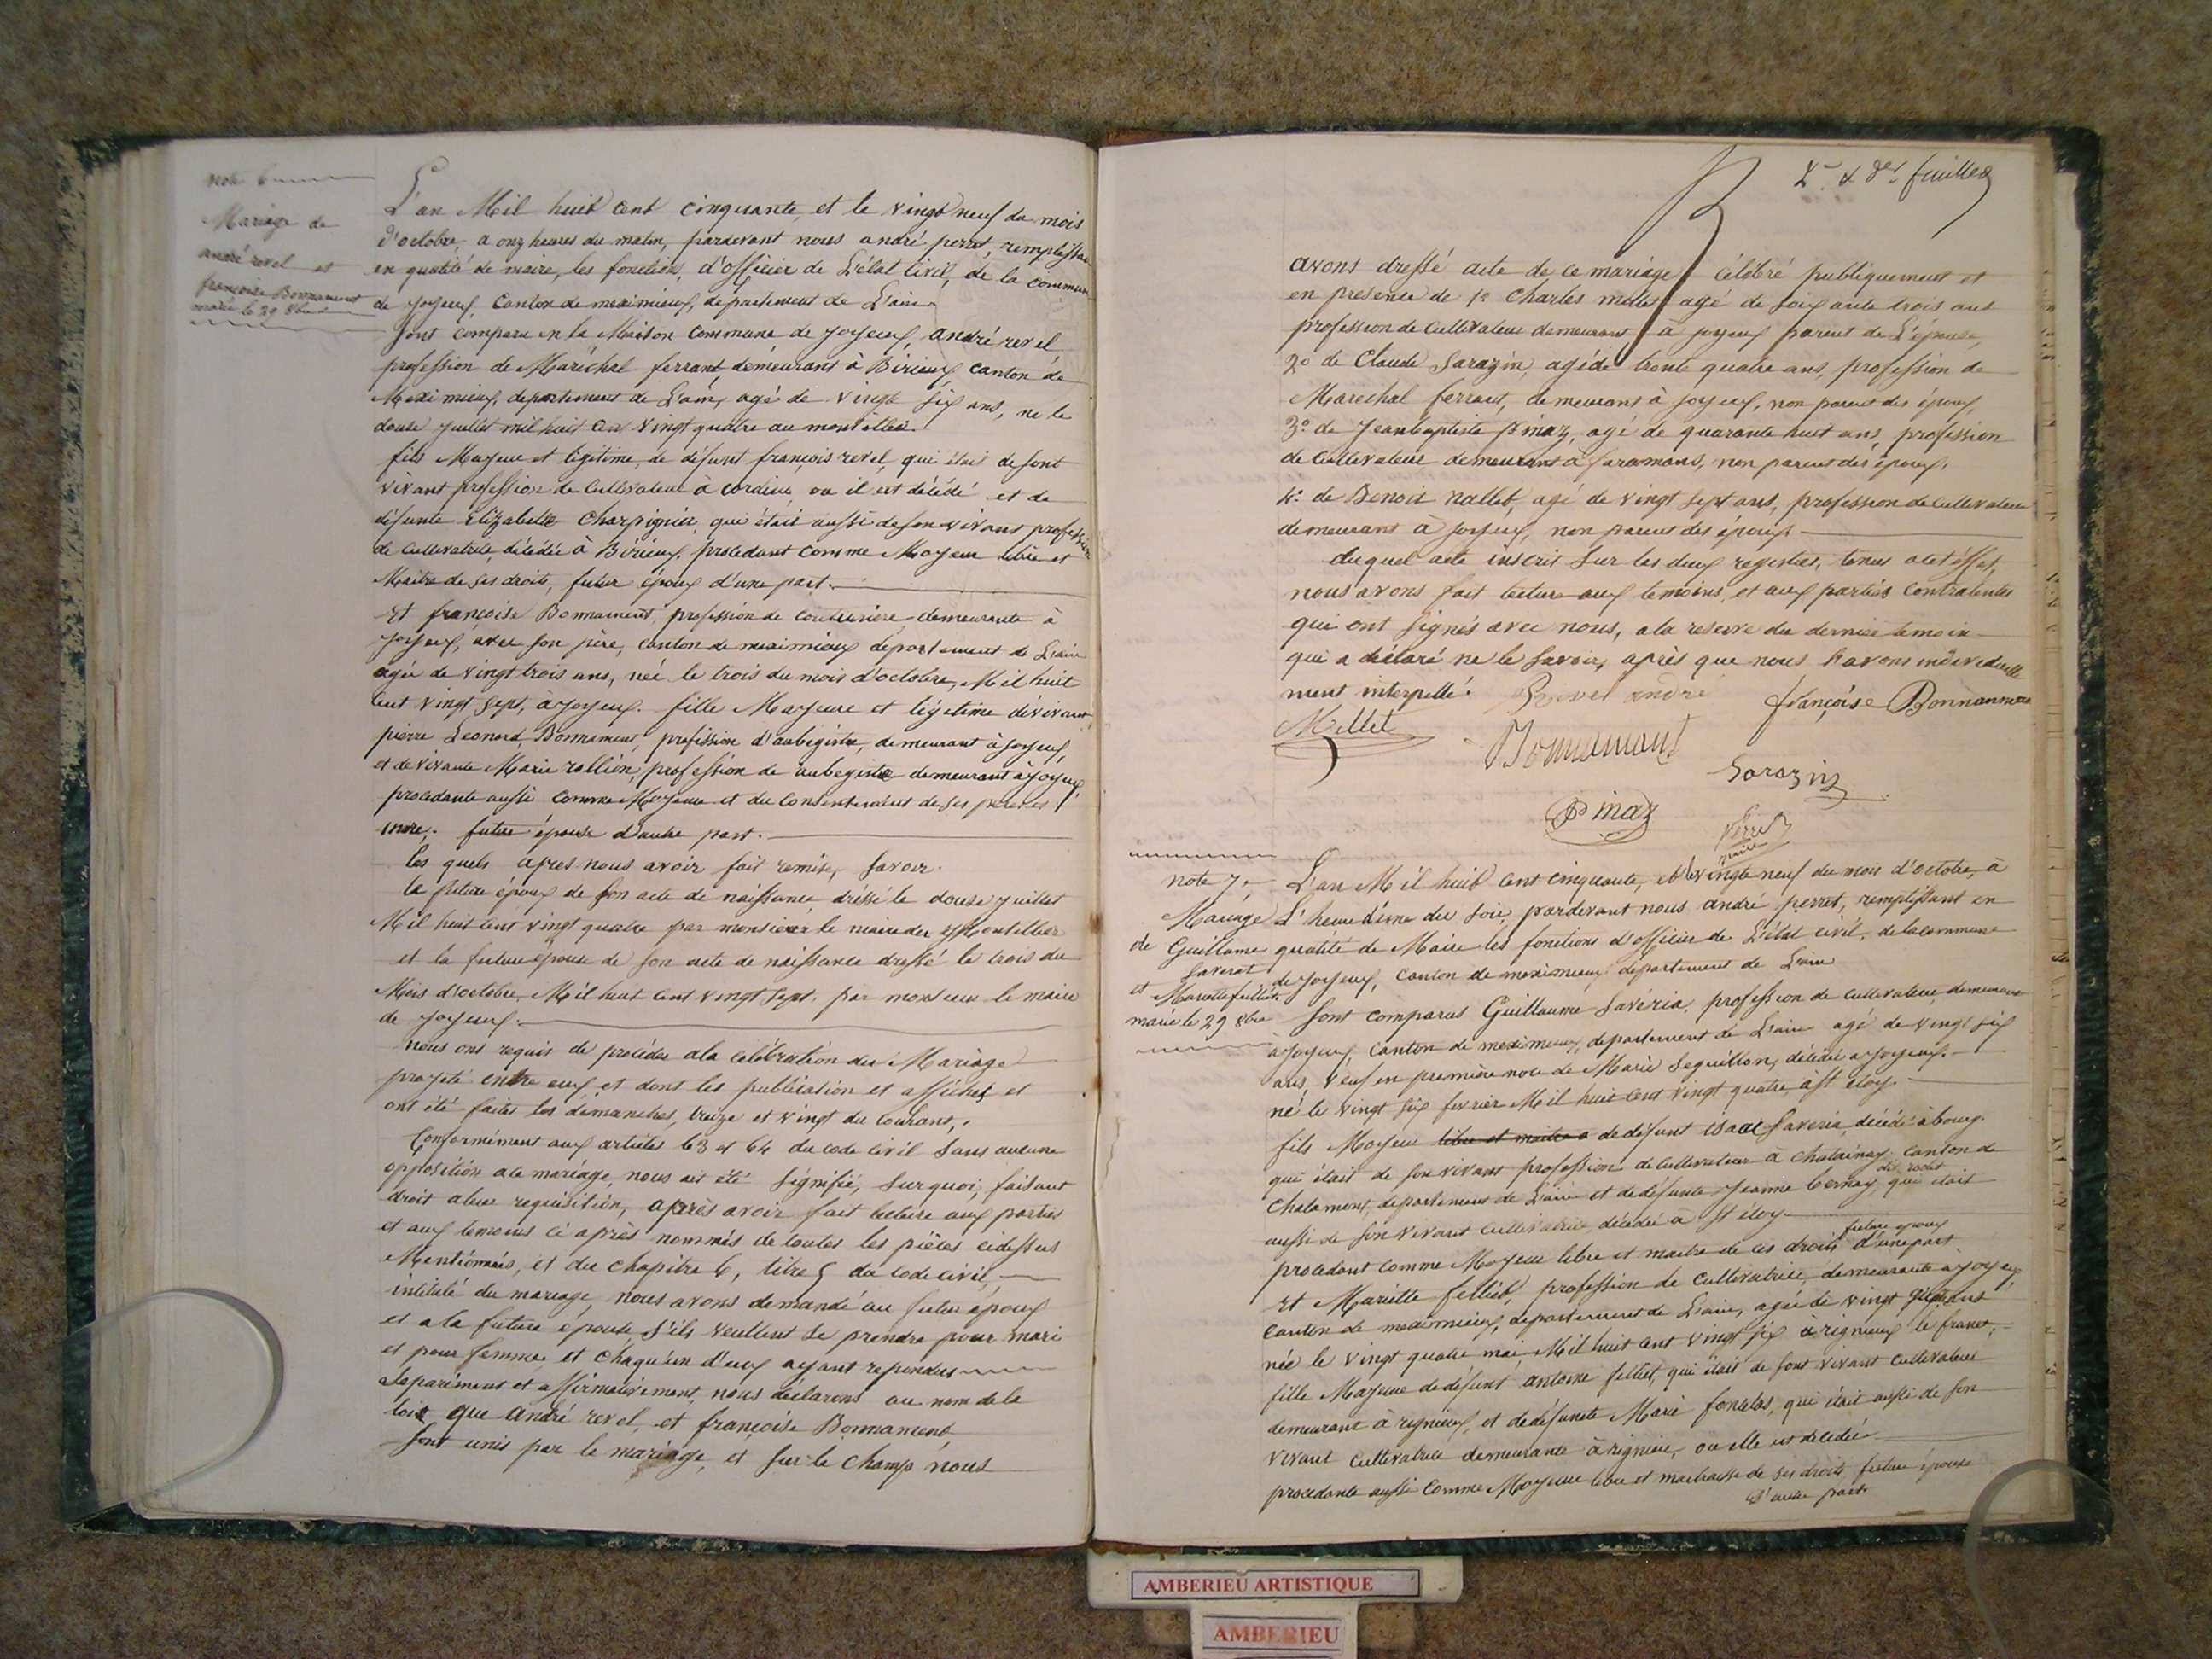 note 6
Mariage de
andré revel et
françoise Bonnament
marié le 29 8bre
L'an Mil huit cent cinquante et le vingt neuf du mois
d'octobre, a onz heures du matin, pardevant nous andré perret, remplissant
en qualité de maire, les fonction, d'officier de L'état Civil, de la commune
de joyeux, Canton de meximieux, departement de L'ain
Sont comparu en la Maison Commune de joyeux, andré revel
profession de Maréchal ferrant, demeurant à Birieux canton de
Meximieux, departement de L'ain, agé de vingt six ans, ne le
douse juillet mil huit cen vingt quatre au montellier.
fils Majeur et légitime, de défunt françois revel, qui était de sont
vivant profession de Cultivateur à Cordieu ou il est décédé et de
défunte Elizabette Charpignier, qui était aussi de son vivans profession
de Cultivatrice, décédée à Birieux, procedant comme Majeur libre et
Maitre de ses droits, futur époux d'une part.
Et françoise Bonnament, profession de couturière demeurante à
joyeux, avec son père, canton de meximieux département de L'ain
agée de vingt trois ans, née le trois du mois d'octobre, Mil huit
cent vingt sept, à joyeux. fille Majeure et légitime de vivant
pierre Leonard Bonnament, profession d'aubegiste, demeurant à joyeux,
et de vivante Marie rollien, profession de aubegiste demeurant à joyeux,
procedante aussi comme Majeure et du consentement de ses père et
mère. future épouse d'autre part.
Les quels apres nous avoir fait remise, savoir.
le future époux de son acte de naissance dréssé le douse juillet
Mil huit cent vingt quatre par monsieur le maire du Montellier
et la future épouse de son acte de naissance dressé le trois du
Mois d'octobre Mil huit cent vingt sept, par monsieur le maire
de joyeux.
nous ont requis de procéder a la célébration du Mariage
projeté entre eux et dont les publication et affiches et
ont été faites les dimanches, treize et vingt du courant,
Conformément aux articles 63 et 64 du code civil sans aucune
opposition a ce mariage, nous ait été signifié, surquoi, faisant
droit a leur requisition, après avoir fait lecture aux parties
et aux temoins ci après nommés de toutes les pièces cidessus
Mentionnées, et du chapitre 6, titre 5 du code civil,
intitulé du mariage, nous avons demandé au futur époux
et a la future épouse s'ils veullent se prendre pour mari
et pour femme et chaqu'un d'eux ayant repondus
Séparément et affirmativement, nous déclarons au nom de la
loit que André revel, et françoise Bonnament,
Sont unis par le mariage, et sur le champ nous
2me & der feuillet
avons dressé acte de ce mariage célébré publiquement et
en presence de 1o Charles mellet agé de soixante trois ans
profession de Cultivateur demeurant à joyeux parent de L'épouse,
2o de Claude Sarazin, agé de trente quatre ans, profession de
Marechal ferrant, demeurans à joyeux, non parent des époux,
3o de Jeanbaptiste pinaz, agé de quarante huit ans, profession
de Cultivateur demeurant à faramans, non parent des époux,
4o de Benoit nallet, agé de vingt sept ans, profession de Cultivateur
demeurans à joyeux, non parent des époux.
du quel acte inscrit sur les deux registres, tenus a cet éffet,
nous avons fait lecture aux temoins, et aux parties contratentes
qui ont signés avec nous, a la reserve du dernier temoin
qui a déclaré ne le savoir, après que nous l'avons individuelle
ment interpellé. Revel andré françoise Bonnanment
Mellet
Bonnamant
Sarazin
Pinaz
Perret
maire
note 7.
Mariage
de Guillaume
Saverat
et Mariette felliet
marié le 29 8bre
L'an Mil huit cent cinquante, et le vingt neuf du mois d'octobre, à
L'heure d'une du soir, pardevant nous andré perret, remplissant en
qualité de Maire les fonctions d'officier de L'état civil, de la commune
de joyeux, canton de meximieux departement de L'ain
Sont comparus Guillaume Savéria, profession de cultivateur demeurant
à joyeux, canton de meximieux, departement de L'ain agé de vingt six
ans, veuf en première noce de Marie Seguillon, décédée a joyeux.
né le vingt six fevrier Mil huit cent vingt quatre, à st éloy.
fils Majeur libre et maitre a de défunt isaac Saveria, décédé à bourg.
qui était de son vivant profession de Cultivateur à chatainay canton de
Chalamont, departement de L'ain et de défunte Jeanne bernay, qui était
aussi de son vivant Cultivatrice, décédée à st éloy
procedant comme Majeur libre et maitre de ces droits futur époux d'une part.
Et Mariette felliet, profession de Cultivatrice, demeurante à joyeux,
canton de meximieux, departement de L'ain, agée de vingt ans
née le vingt quatre mai Mil huit cent vingt six à rignieux le franc,
fille Majeure de défunt antoine felliet, qui était de sont vivant cultivateur
demeurant à rignieux, et de défunte Marie fontelas, qui était aussi de son
vivant Cultivatrice demeurante à rignieux, ou elle est décédée
procedante aussi comme Majeure libre et maitraisse de ses droits future épouse
d'autre part.
AMBERIEU ARTISTIQUE
AMBERIEU